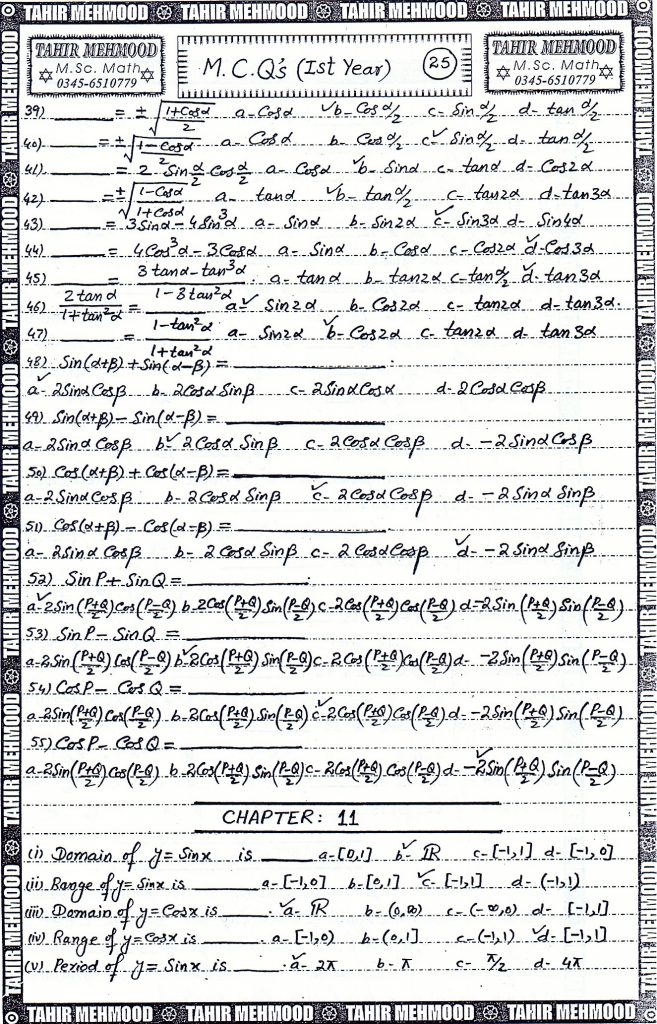 TAHIR MEHMOOD TAHIR MEHMOOD TAHIR MEHMOOD TAHIR MEHMOOD
TAHIR MEHMOOD
M.Sc. Math
0345-6510779
M.C.Q's (Ist Year)
25
TAHIR MEHMOOD
M.Sc. Math
0345-6510779
39) ______ = ± √((1+Cosα)/2) a- Cosα ✓b- Cos α/2 c- Sin α/2 d- tan α/2
40) ______ = ± √((1-Cosα)/2) a- Cosα b- Cos α/2 ✓c- Sin α/2 d- tan α/2
41) ______ = 2 Sin α/2 Cos α/2 a- Cosα ✓b- Sinα c- tanα d- Cos2α
42) ______ = ± √((1-Cosα)/(1+Cosα)) a- tanα ✓b- tan α/2 c- tan2α d- tan3α
43) ______ = 3Sinα - 4Sin³α a- Sinα b- Sin2α ✓c- Sin3α d- Sin4α
44) ______ = 4Cos³α - 3Cosα a- Sinα b- Cosα c- Cos2α ✓d- Cos3α
45) ______ = (3tanα - tan³α)/(1-3tan²α) . a- tanα b- tan2α c- tan α/2 ✓d- tan3α
46) 2tanα/(1+tan²α) = ______ a-✓ Sin2α b- Cos2α c- tan2α d- tan3α.
47) ______ = (1-tan²α)/(1+tan²α) a- Sin2α ✓b- Cos2α c- tan2α d- tan3α
48) Sin(α+β) + Sin(α-β) = ______ .
✓a- 2Sinα Cosβ b- 2Cosα Sinβ c- 2Sinα Cosα d- 2Cosα Cosβ
49) Sin(α+β) - Sin(α-β) = ______
a- 2Sinα Cosβ b-✓ 2Cosα Sinβ c- 2Cosα Cosβ d- -2Sinα Cosβ
50) Cos(α+β) + Cos(α-β) = ______
a- 2Sinα Cosβ b- 2Cosα Sinβ ✓c- 2Cosα Cosβ d- -2Sinα Sinβ
51) Cos(α+β) - Cos(α-β) = ______
a- 2Sinα Cosβ b- 2Cosα Sinβ c- 2Cosα Cosβ ✓d- -2Sinα Sinβ
52) Sin P + Sin Q = ______ .
a-✓ 2Sin((P+Q)/2) Cos((P-Q)/2) b- 2Cos((P+Q)/2) Sin((P-Q)/2) c- 2Cos((P+Q)/2) Cos((P-Q)/2) d- -2Sin((P+Q)/2) Sin((P-Q)/2)
53) Sin P - Sin Q = ______
a- 2Sin((P+Q)/2) Cos((P-Q)/2) b-✓ 2Cos((P+Q)/2) Sin((P-Q)/2) c- 2Cos((P+Q)/2) Cos((P-Q)/2) d- -2Sin((P+Q)/2) Sin((P-Q)/2)
54) Cos P - Cos Q = ______
a- 2Sin((P+Q)/2) Cos((P-Q)/2) b- 2Cos((P+Q)/2) Sin((P-Q)/2) ✓c- 2Cos((P+Q)/2) Cos((P-Q)/2) d- -2Sin((P+Q)/2) Sin((P-Q)/2)
55) Cos P - Cos Q = ______
a- 2Sin((P+Q)/2) Cos((P-Q)/2) b- 2Cos((P+Q)/2) Sin((P-Q)/2) c- 2Cos((P+Q)/2) Cos((P-Q)/2) d-✓ -2Sin((P+Q)/2) Sin((P-Q)/2)
CHAPTER: 11
(i) Domain of y = Sinx is ______ a- [0,1] b-✓ ℝ c- [-1,1] d- [-1,0]
(ii) Range of y = Sinx is ______ a- [-1,0] b- [0,1] ✓c- [-1,1] d- (-1,1)
(iii) Domain of y = Cosx is ______ . ✓a- ℝ b- (0,∞) c- (-∞,0) d- [-1,1]
(iv) Range of y = Cosx is ______ . a- [-1,0) b- (0,1] c- (-1,1) ✓d- [-1,1]
(v) Period of y = Sinx is ______ . ✓a- 2π b- π c- π/2 d- 4π
TAHIR MEHMOOD TAHIR MEHMOOD TAHIR MEHMOOD TAHIR MEHMOOD
TAHIR MEHMOOD TAHIR MEHMOOD TAHIR MEHMOOD TAHIR MEHMOOD TAHIR MEHMOOD TAHIR MEHMOOD
TAHIR MEHMOOD TAHIR MEHMOOD TAHIR MEHMOOD TAHIR MEHMOOD TAHIR MEHMOOD TAHIR MEHMOOD